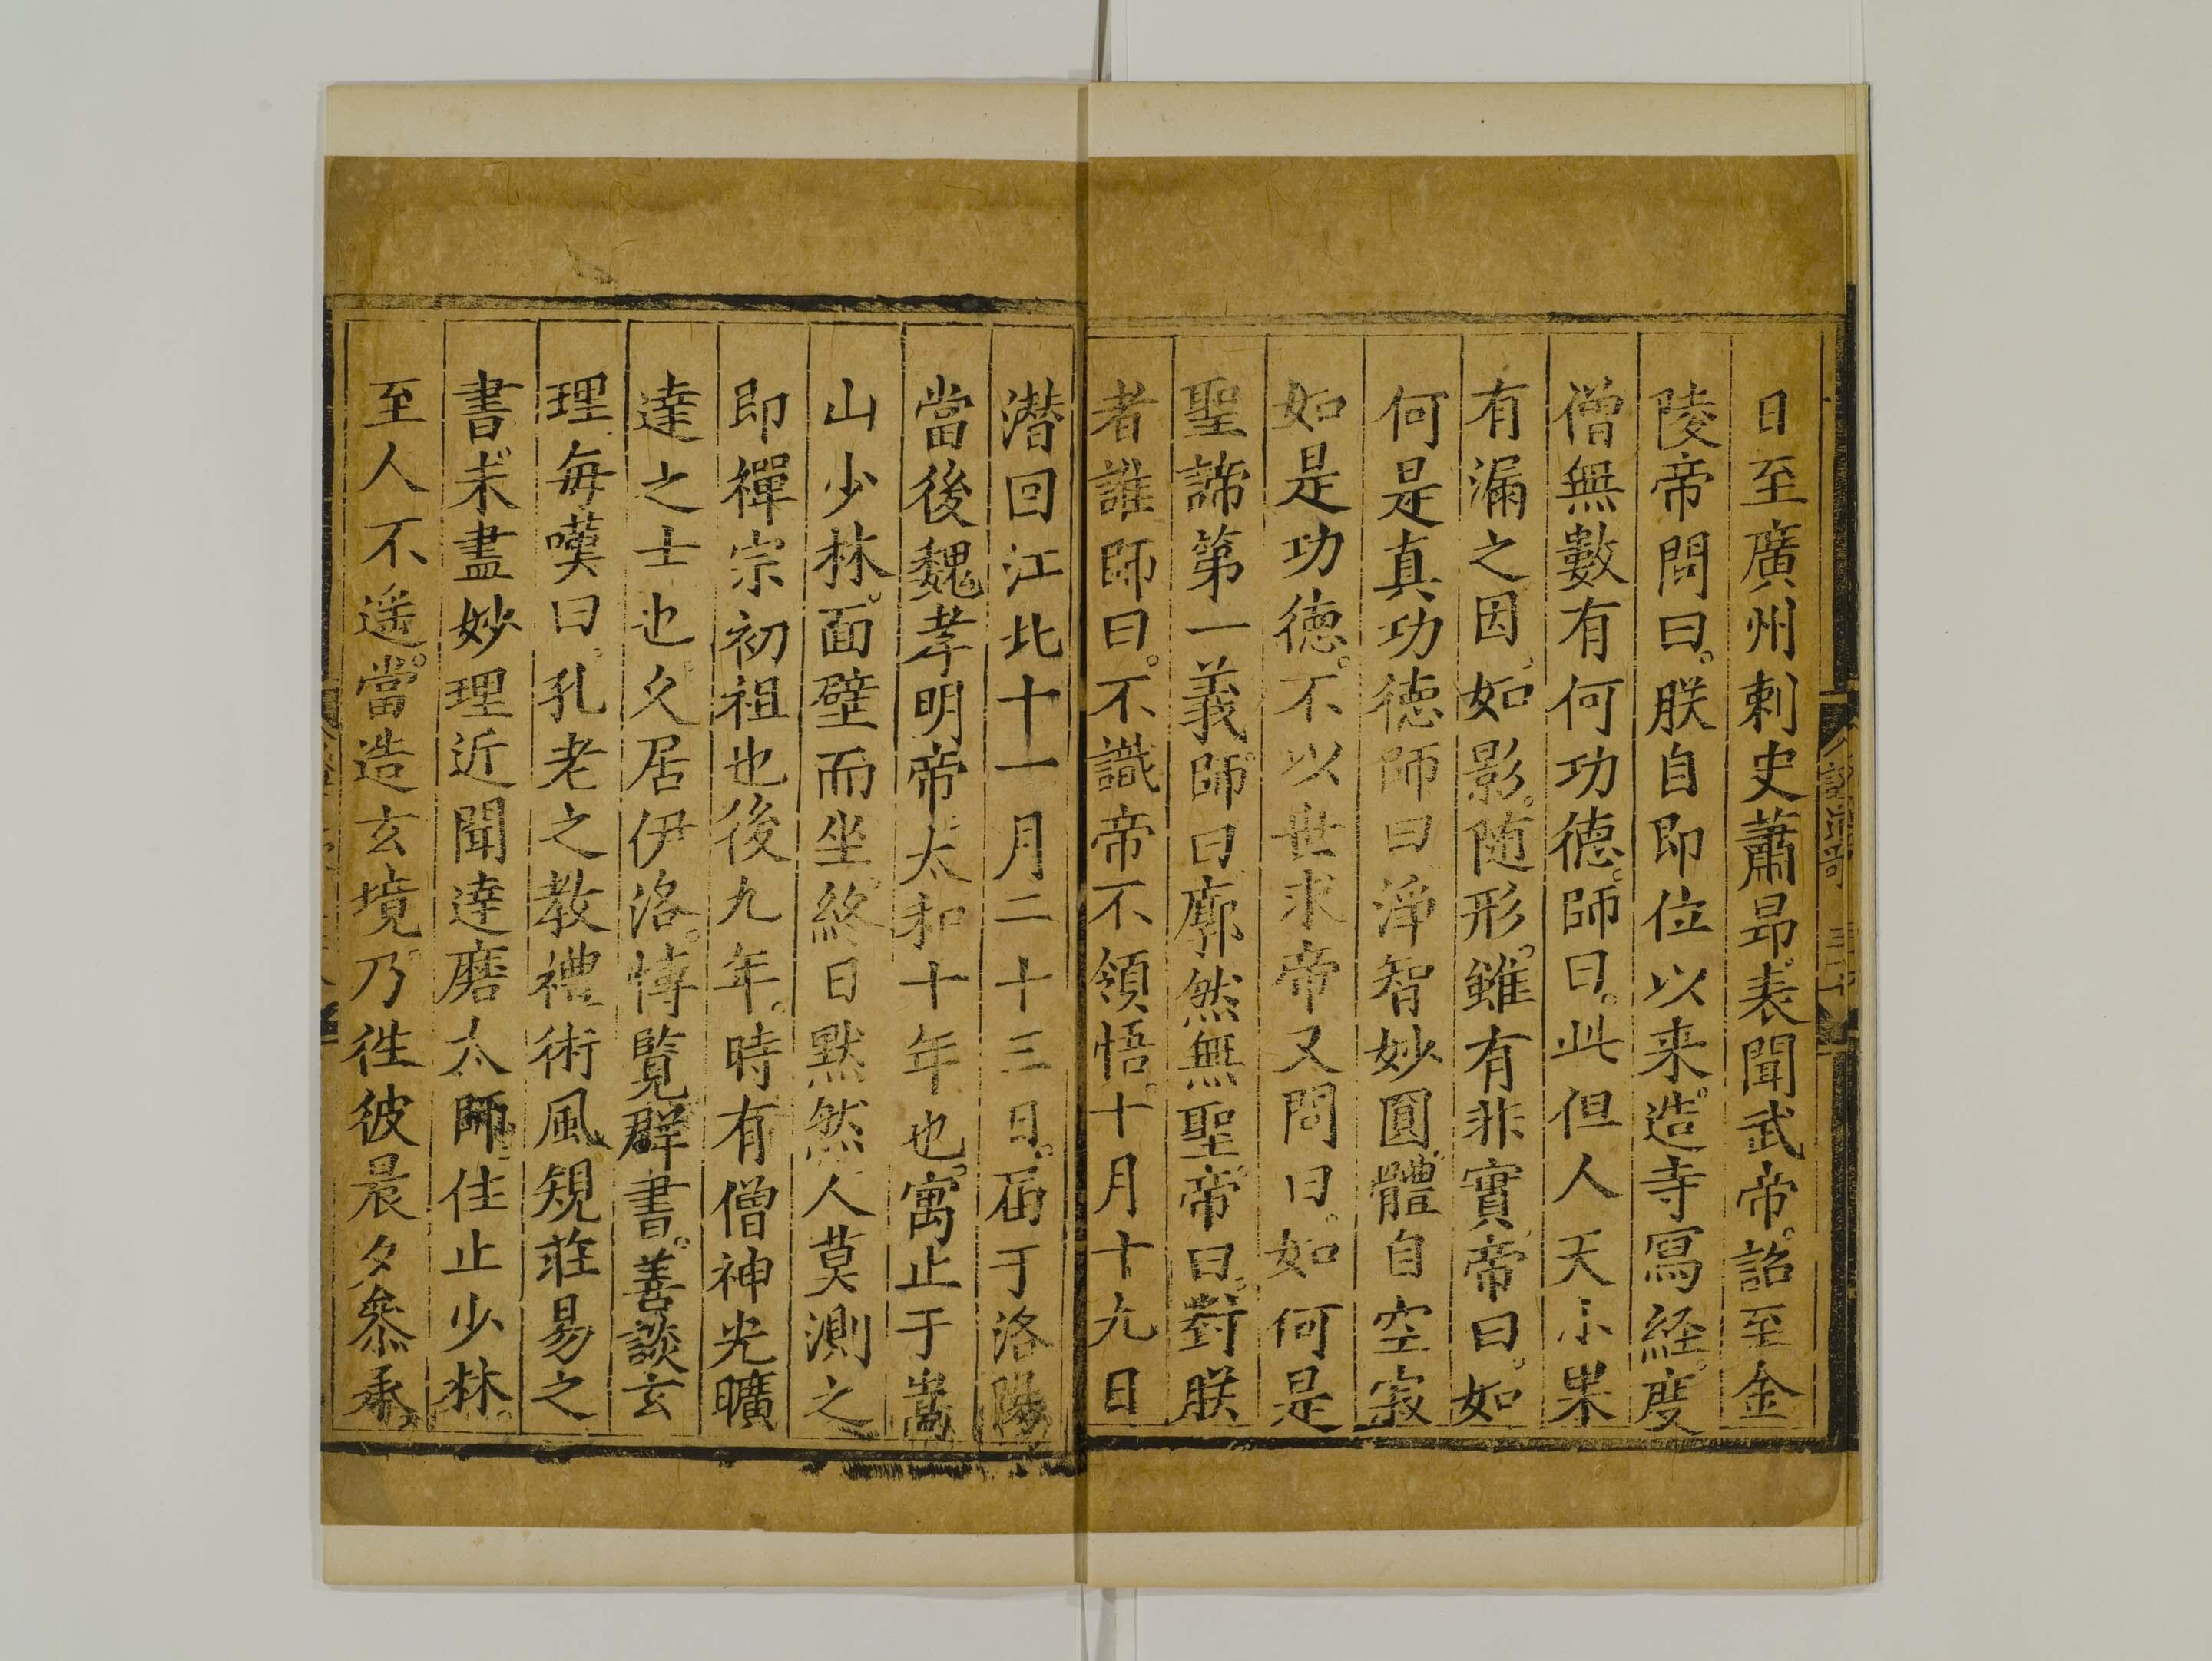 日至廣州刺史蕭昂表聞武帝。詔至金
陵帝問曰。朕自即位以来。造寺寫經。度
僧無數有何功德。師曰。此但人天小果
有漏之因、如影。随形。雖有非實帝曰。如
何是真功德師曰淨智妙圓體自空寂
如是功德。不以世求帝又問曰。如何是
聖諦第一義師曰廓然無聖帝曰。對朕
者誰師曰。不識帝不領悟。十月十九日
潜回江北十一月二十三日。届于洛陽
當後魏孝明帝太和十年也。寓止于嵩
山少林。面壁而坐。終日默然人莫測之
即禪宗初祖也後九年。時有僧神光曠
達之士也。久居伊洛。愽覧群書。善談玄
理每嘆曰孔老之教禮術風規莊易之
書未盡妙理近聞達磨大師住止少林。
至人不遥。當造玄境。乃徃彼晨夕叅承